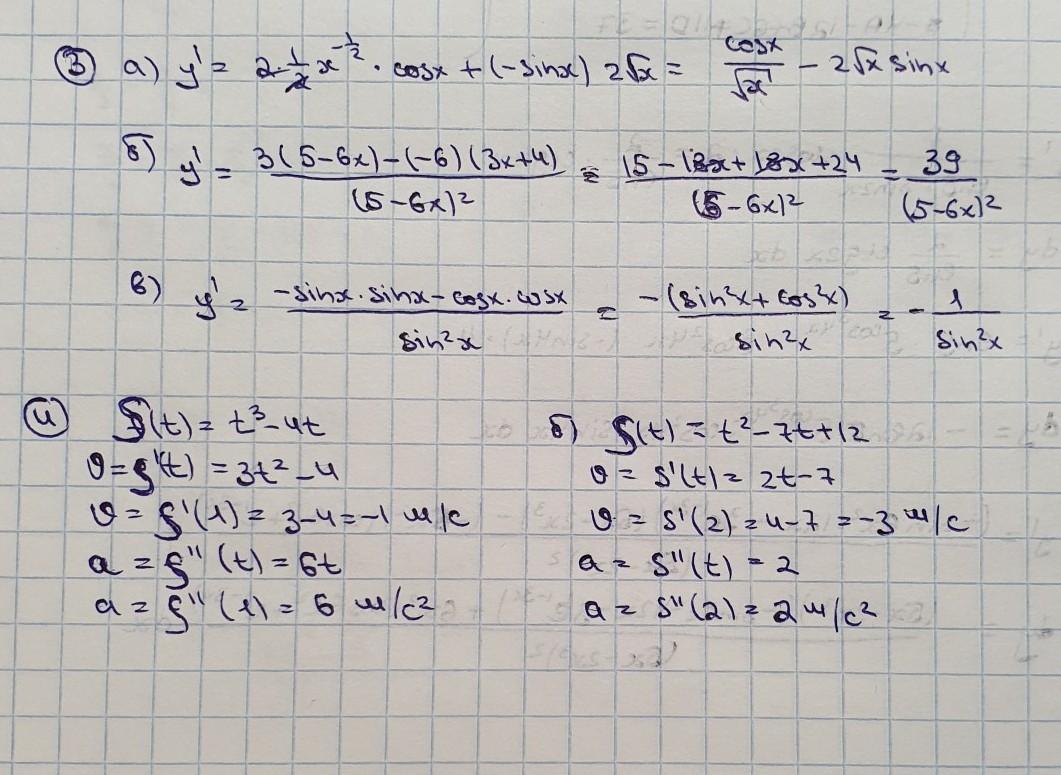 ③ а) y' = 2·1/2 x^(-1/2) · cosx + (-sinx) 2√x = cosx/√x - 2√x sinx
б) y' = (3(5-6x)-(-6)(3x+4))/(5-6x)² = (15-18x+18x+24)/(5-6x)² = 39/(5-6x)²
в) y' = (-sinx·sinx-cosx·cosx)/sin²x = -(sin²x+cos²x)/sin²x = -1/sin²x
④ S(t) = t³-4t
υ = S'(t) = 3t²-4
υ = S'(1) = 3-4 = -1 м/с
a = S''(t) = 6t
a = S''(1) = 6 м/с²
б) S(t) = t²-7t+12
υ = S'(t) = 2t-7
υ = S'(2) = 4-7 = -3 м/с
a = S''(t) = 2
a = S''(2) = 2 м/с²